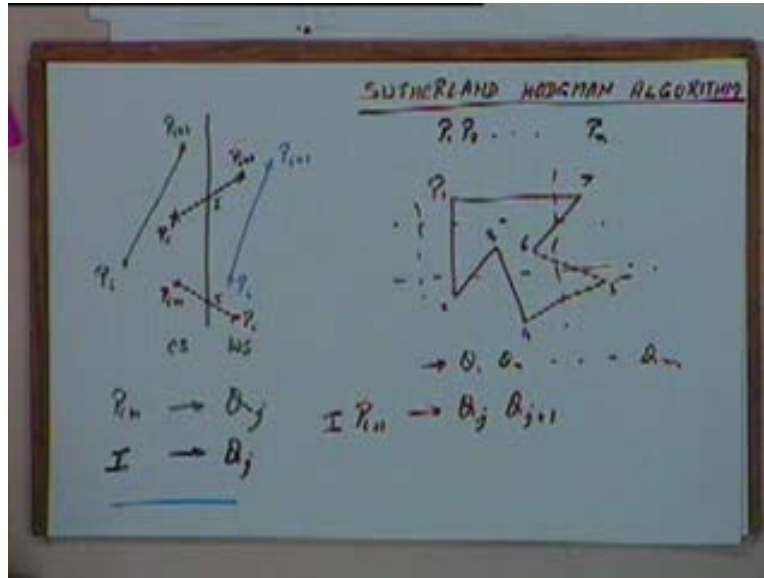 SUTHERLAND HODGMAN ALGORITHM
P1 P2 . . . Pn
Pi+1
Pi+1
Pi+1
I
Pi
Pi
Pi+1
I
Pi
Pi
CS WS
P1
7
3
6
5
2
4
→ Q1 Q2 . . . - Qm
Pi+1 → Qj
I Pi+1 → Qj Qj+1
I → Qj